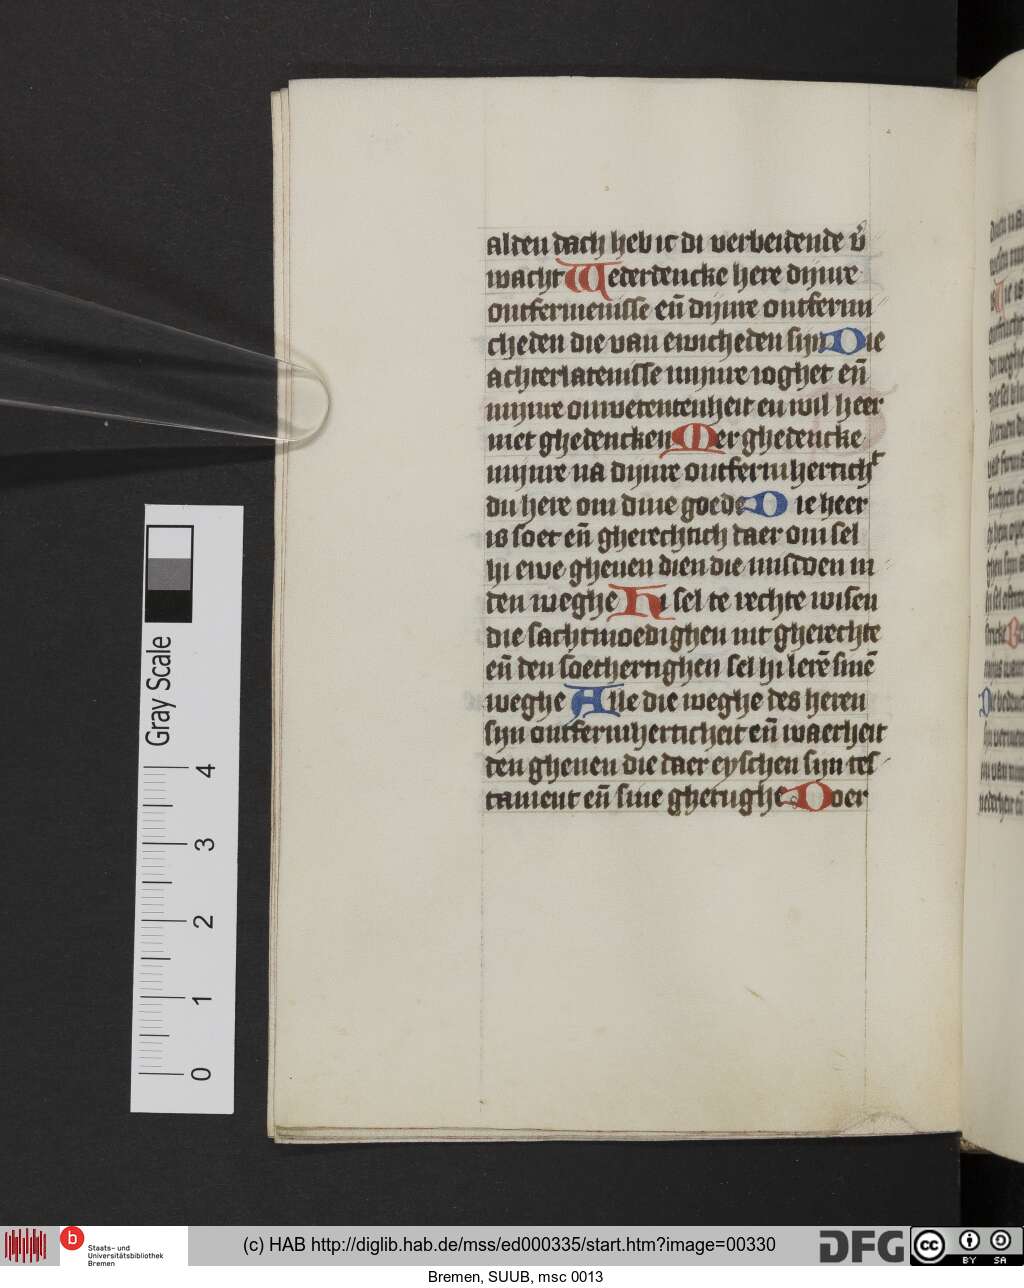 alden dach heb ic di verbeidende v̄
wacht Wederdencke here dijnre
ontfermenisse eñ dijnre ontferm
cheden die van ewicheden sijn Die
achterlatenisse mijnre ioghet eñ
mijnre onwetentenheit en wil heer
niet ghedencken Mer ghedencke
mijnre na dijnre ontfermherticht
du here om dine goede Die heer
is soet eñ gherechtich daer om sel
hi ewe gheuen dien die misdoen in
den weghe Hi sel te rechte wisen
die sachtmoedighen int gherechte
eñ den soethertighen sel hi lerē sinē
weghe Alle die weghe des heren
sijn ontfermherticheit eñ waerheit
den gheuen die daer eyschen sijn tes
tament eñ sine ghetughe Doer
Gray Scale
4
3
2
1
0
b
Staats- und
Universitätsbibliothek
Bremen
(c) HAB http://diglib.hab.de/mss/ed000335/start.htm?image=00330
DFG
cc
BY SA
Bremen, SUUB, msc 0013